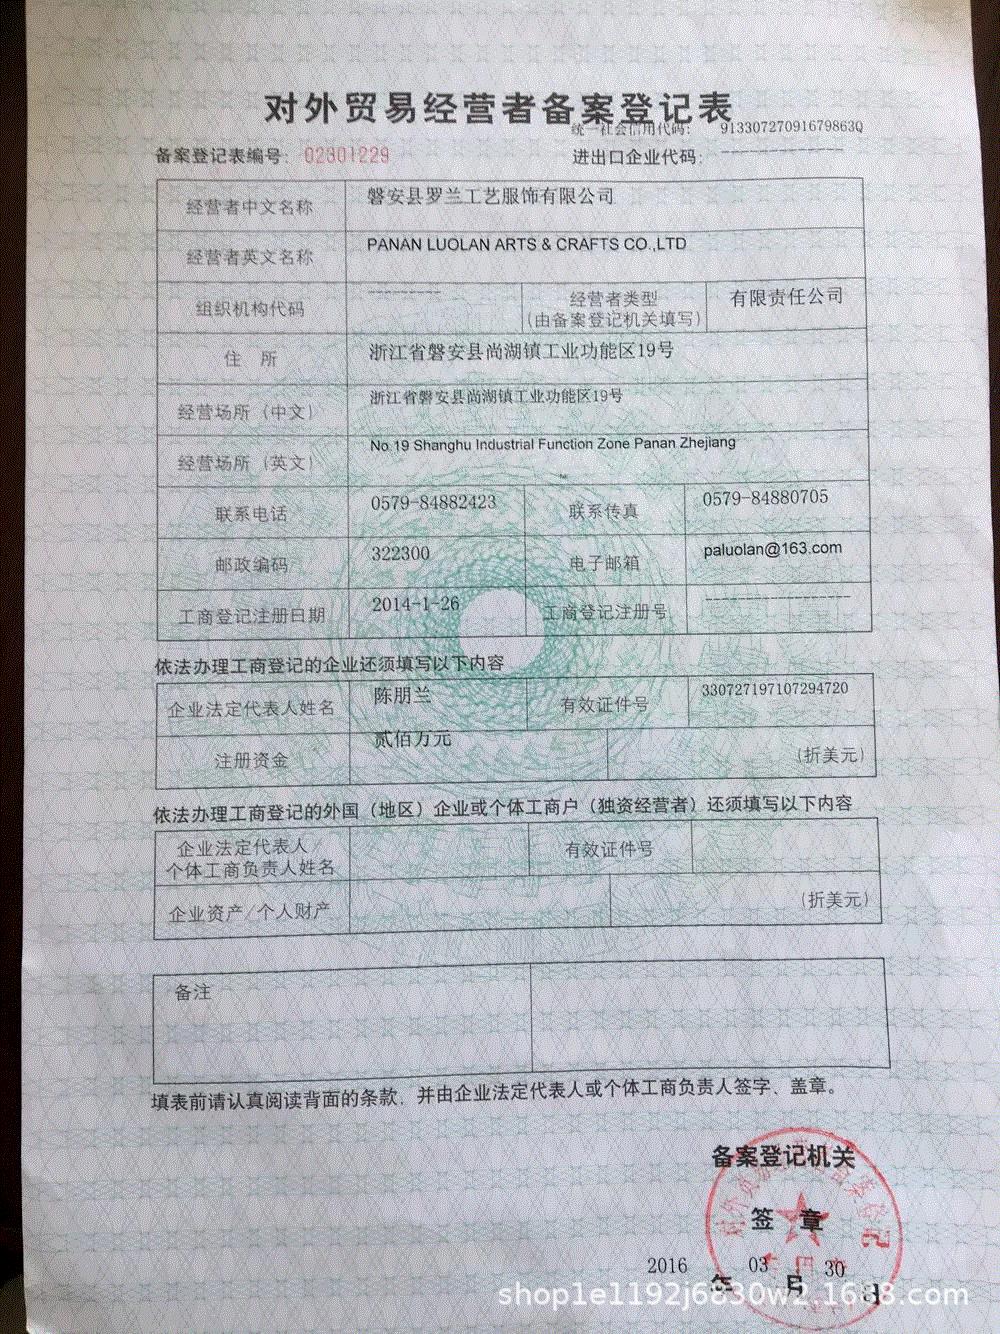 对外贸易经营者备案登记表
统一社会信用代码： 91330727091679863Q
备案登记表编号： 02301229 进出口企业代码： ---------------
经营者中文名称 磐安县罗兰工艺服饰有限公司
经营者英文名称 PANAN LUOLAN ARTS & CRAFTS CO.,LTD
组织机构代码 --------- 经营者类型 有限责任公司
(由备案登记机关填写)
住 所 浙江省磐安县尚湖镇工业功能区19号
经营场所（中文） 浙江省磐安县尚湖镇工业功能区19号
经营场所（英文） No.19 Shanghu Industrial Function Zone Panan Zhejiang
联系电话 0579-84882423 联系传真 0579-84880705
邮政编码 322300 电子邮箱 paluolan@163.com
工商登记注册日期 2014-1-26 工商登记注册号 ------------------
依法办理工商登记的企业还须填写以下内容
企业法定代表人姓名 陈朋兰 有效证件号 330727197107294720
注册资金 贰佰万元 (折美元)
依法办理工商登记的外国（地区）企业或个体工商户（独资经营者）还须填写以下内容
企业法定代表人/ 有效证件号
个体工商负责人姓名
企业资产/个人财产 (折美元)
备注
填表前请认真阅读背面的条款，并由企业法定代表人或个体工商负责人签字、盖章。
备案登记机关
签 章
对外贸易经营者备案登记
2016 年 03 月 30 日
shop1e1192j6830w2.1688.com